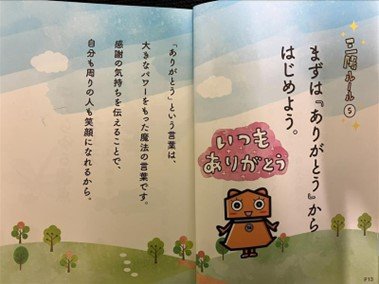 三陽ルール⑤
まずは『ありがとう』から
はじめよう。
いつも
ありがとう
「ありがとう」という言葉は、
大きなパワーをもった魔法の言葉です。
感謝の気持ちを伝えることで、
自分も周りの人も笑顔になれるから。